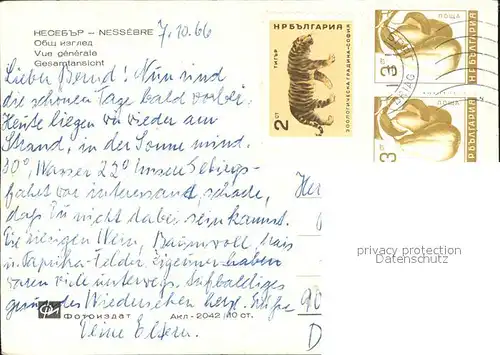 НЕСЕБЪР — NESSÈBRE
Общ изглед
Vue générale
Gesamtansicht
7.10.66
Lieber Bernd! Nun sind
die schönen Tage bald vorbei.
Heute liegen wir wieder am
Strand, in der Sonne sind
30° Wasser 22° Unsere Gebirgs-
fahrt war interessand, schade,
daß Du nicht dabei sein kannst.
Die riesigen Wein, Baumwoll, Mais
u. Paprika-Felder Zigeuner haben
waren viele unterwegs. Auf baldiges
gesundes Wiedersehen herzl. Grüße
Deine Eltern.
Фотоиздат Акл - 2042/10 ст.
НР БЪЛГАРИЯ
ТИГЪР
2 СТ
ЗООЛОГИЧЕСКА ГРАДИНА-СОФИЯ
ПОЩА
3 СТ
НР БЪЛГАРИЯ
ПОЩА
3
НР БЪЛГАРИЯ
Her
90
D
privacy protection
Datenschutz